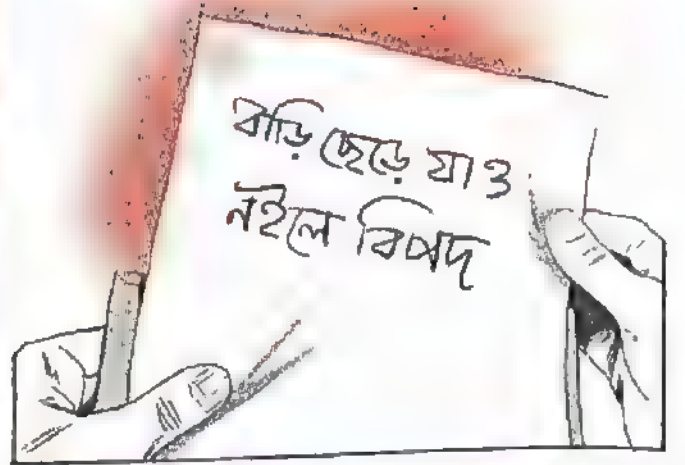 বাড়ি ছেড়ে যাও
নইলে বিপদ